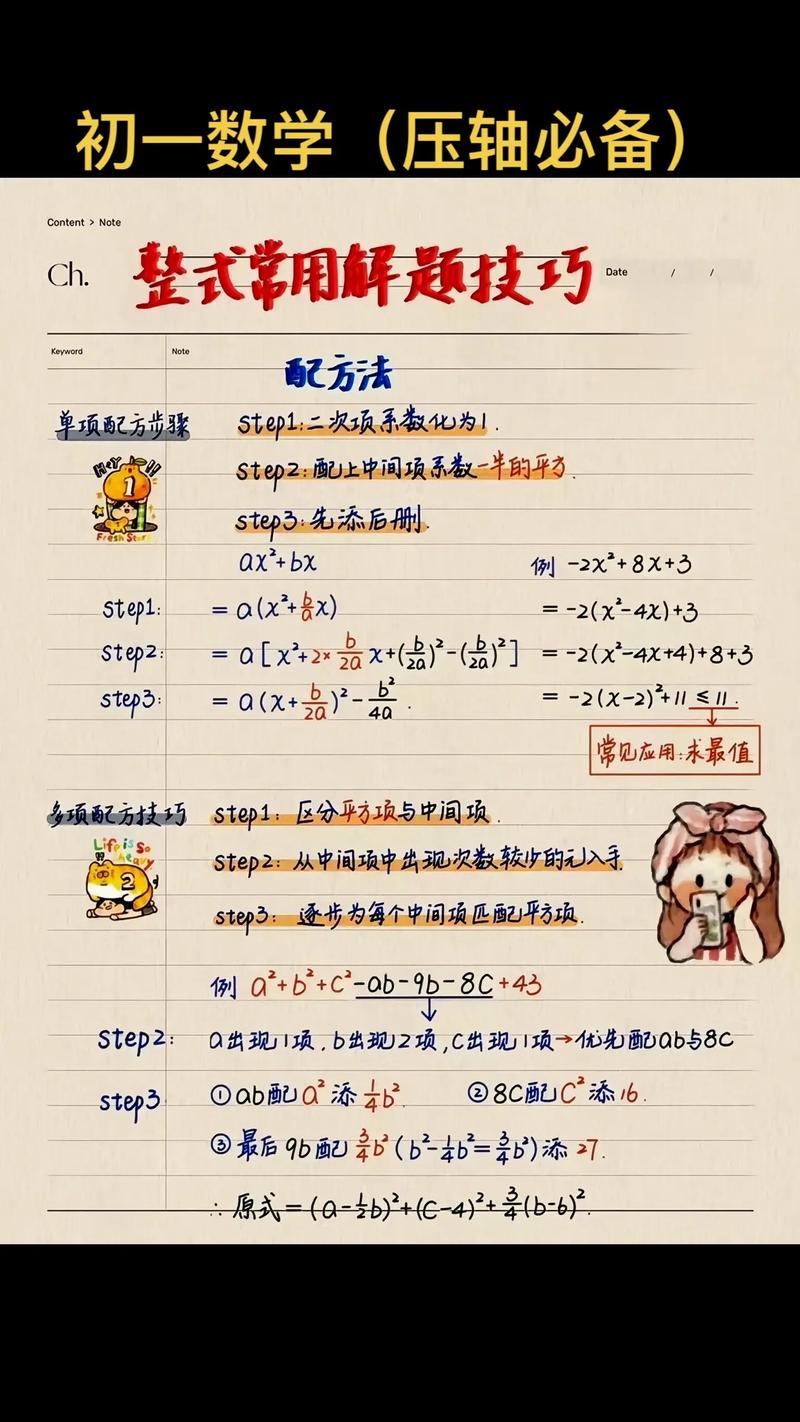 初一数学（压轴必备）
Content > Note
Ch. 整式常用解题技巧 Date / /
Keyword Note
配方法
单项配方步骤 step1:二次项系数化为1.
step2:配上中间项系数一半的平方.
step3:先添后删.
Hey !!
1
Fresh Start
ax²+bx 例 -2x²+8x+3
step1: = a(x²+b/a x) = -2(x²-4x)+3
step2: = a[x²+2×b/2a x+(b/2a)²-(b/2a)²] = -2(x²-4x+4)+8+3
step3: = a(x+b/2a)²-b²/4a. = -2(x-2)²+11 ≤ 11.
常见应用:求最值
多项配方技巧 step1: 区分平方项与中间项.
Life is so
heavy
2
step2: 从中间项中出现次数较少的元入手.
step3: 逐步为每个中间项匹配平方项.
例 a²+b²+c²-ab-9b-8c+43
step2: a出现1项,b出现2项,c出现1项→优先配ab与8c
step3: ①ab配a²添1/4b². ②8c配c²添16.
③最后9b配3/4b²(b²-1/4b²=3/4b²)添27.
∴原式=(a-1/2b)²+(c-4)²+3/4(b-6)².